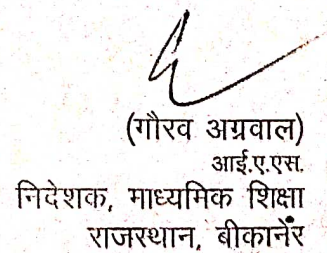 (गौरव अग्रवाल)
आई.ए.एस.
निदेशक, माध्यमिक शिक्षा
राजस्थान, बीकानेर